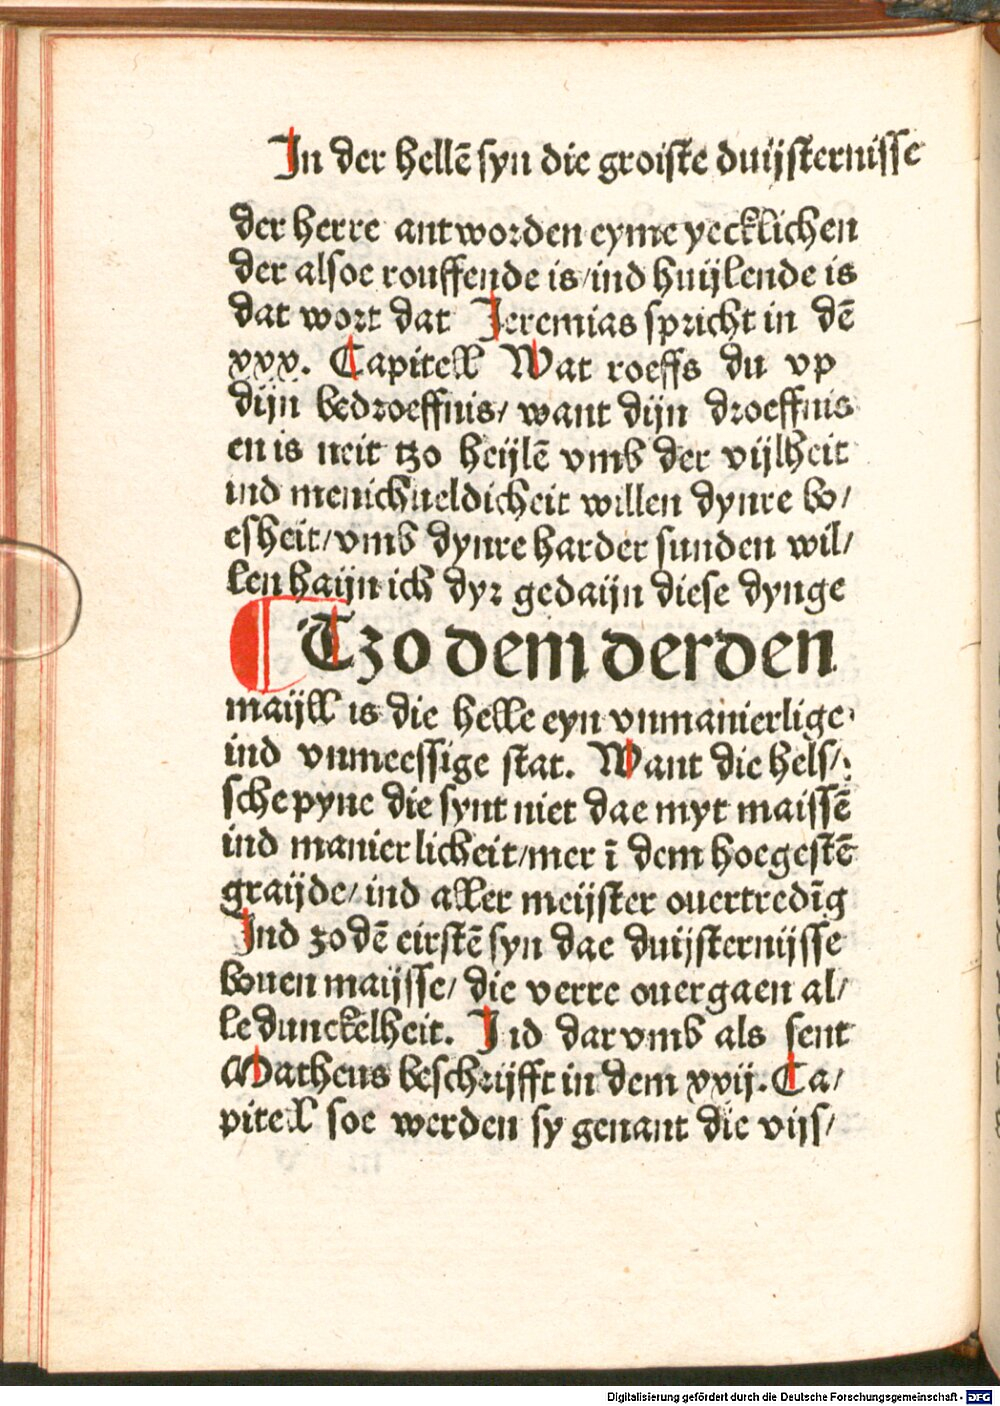 In der hellē syn die groiste duijsternisse
der herre antworden eyme yecklichen
der alsoe rouffende is/ind huijlende is
dat wort dat Jeremias spricht in dē
xxx. Capitell Wat roeffs du vp
dijn bedroeffnis/ want dijn droeffnis
en is neit tzo heijlē vmb der vijlheit
ind menichueldicheit willen dynre bo/
esheit/vmb dynre harder sunden wil/
len haijn ich dyr gedaijn diese dynge
Tzo dem derden
maijll is die helle eyn vnmanierlige
ind vnmeessige stat. Want die hels/
sche pyne die synt niet dae myt maissē
ind manierlicheit/mer ī dem hoegestē
graijde/ ind aller meijster ouertredīg
Ind zo dē eirstē syn dae duijsternijsse
bouen maijsse/ die verre ouergaen al/
le dunckelheit. Ind darvmb als sent
Matheus beschrijfft in dem xxij. Ca/
pitell soe werden sy genant die vijs/
Digitalisierung gefördert durch die Deutsche Forschungsgemeinschaft - DFG